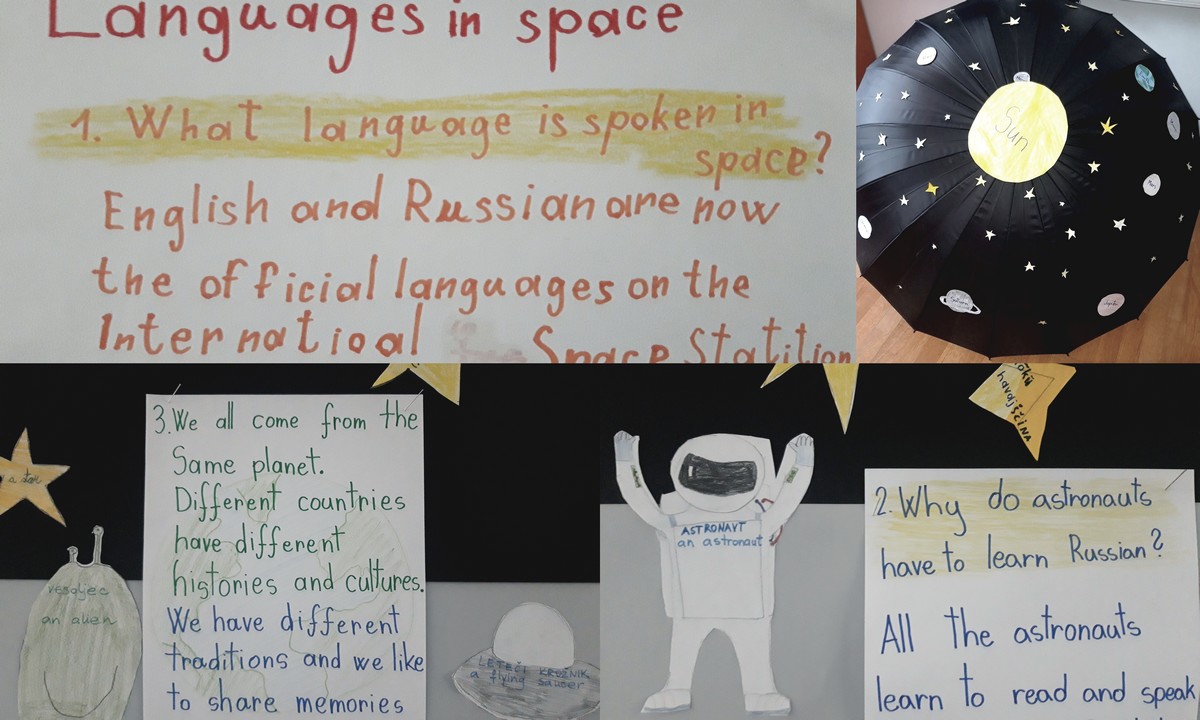 Languages in space
1. What language is spoken in
space?
English and Russian are now
the official languages on the
Internatioal Space Statition
Sun
Saturn
3. We all come from the
Same planet.
Different countries
have different
histories and cultures.
We have different
traditions and we like
to share memories
a star
vesoljec
an alien
LETEČI KROŽNIK
a flying sauser
ASTRONAVT
an astronaut
havajŠČINA
2. Why do astronauts
have to learn Russian?
All the astronauts
learn to read and speak